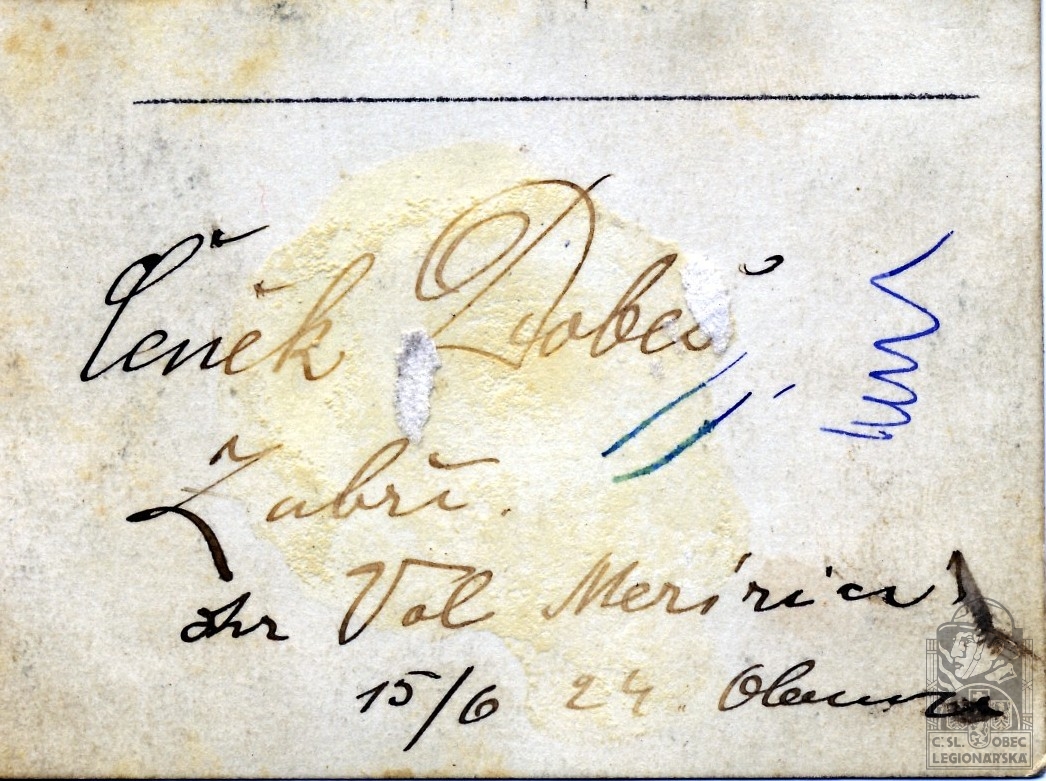 Čeněk Dobeš
Zubří.
okr Val Meziřící
15/6 24. Olomouc
Č. SL. OBEC
LEGIONÁŘSKÁ